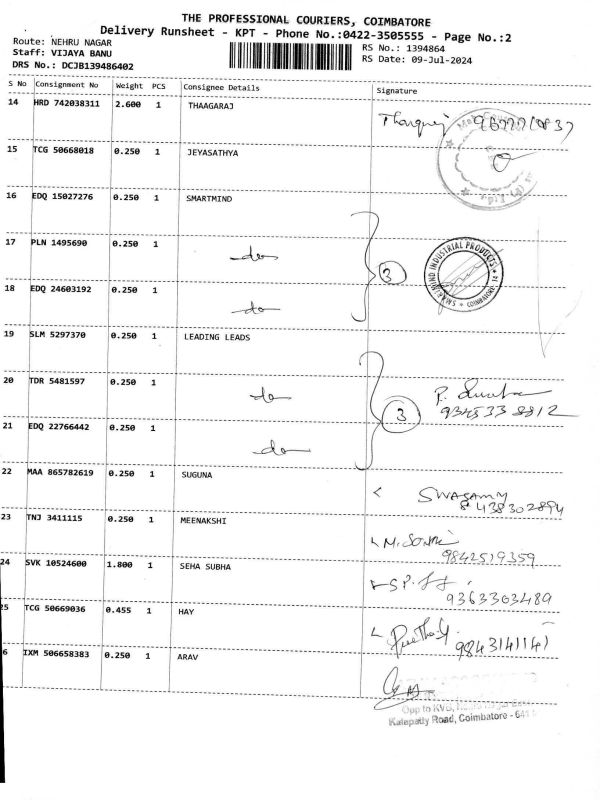 THE PROFESSIONAL COURIERS, COIMBATORE
Delivery Runsheet - KPT - Phone No.:0422-3505555 - Page No.:2
Route: NEHRU NAGAR
RS No.: 1394864
Staff: VIJAYA BANU
RS Date: 09-Jul-2024
DRS No.: DCJB139486402
S No Consignment No Weight PCS Consignee Details Signature
14 HRD 742038311 2.600 1 THAAGARAJ
15 TCG 50668018 0.250 1 JEYASATHYA
16 EDQ 15027276 0.250 1 SMARTMIND
17 PLN 1495690 0.250 1 do
3
18 EDQ 24603192 0.250 1 do
19 SLM 5297370 0.250 1 LEADING LEADS
20 TDR 5481597 0.250 1 do
3
9345338812
21 EDQ 22766442 0.250 1 do
22 MAA 865782619 0.250 1 SUGUNA
SWASAMY
8438302894
23 TNJ 3411115 0.250 1 MEENAKSHI
9842519359
24 SVK 10524600 1.800 1 SEHA SUBHA
9363303489
25 TCG 50669036 0.455 1 HAY
9843141141
6 IXM 506658383 0.250 1 ARAV
Opp to KVG,
Kalapatty Road, Coimbatore - 641